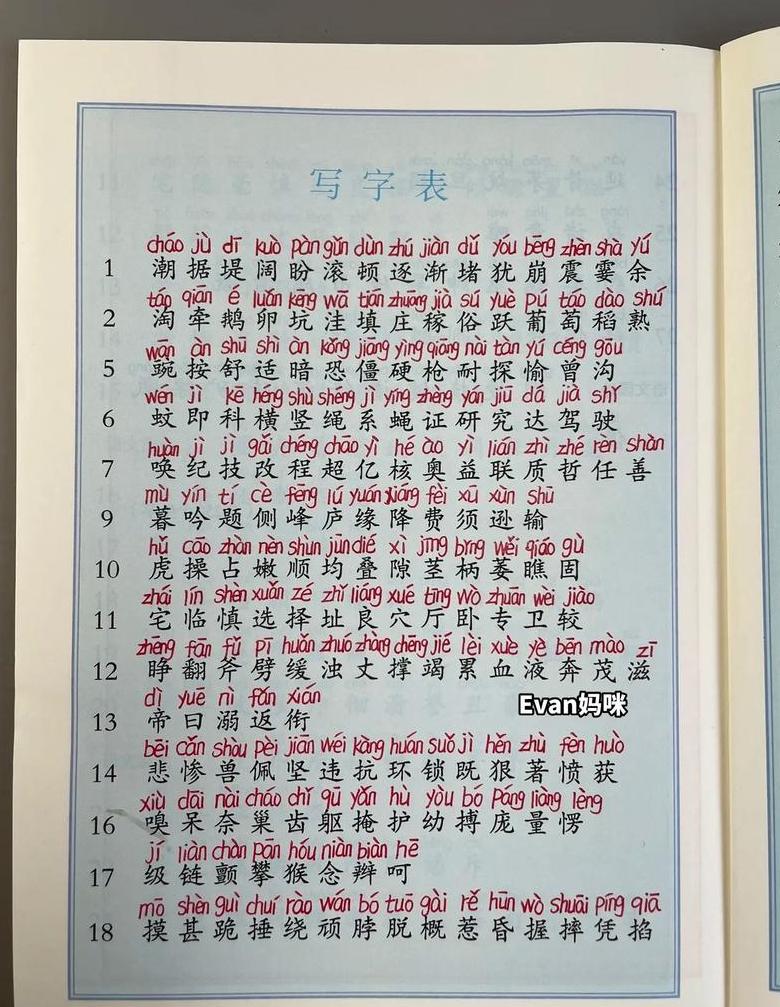 写字表
cháo jù dī kuò pàn gǔn dùn zhú jiàn dǔ yóu bēng zhèn shà yú
1 潮据堤阔盼滚顿逐渐堵犹崩震霎余
táo qiān é luǎn kēng wā tián zhuāng jià sú yuè pú táo dào shú
2 淘牵鹅卵坑洼填庄稼俗跃葡萄稻熟
wān àn shū shì àn kǒng jiāng yìng qiāng nài tàn yú céng gōu
5 豌按舒适暗恐僵硬枪耐探愉曾沟
wén jì kē héng shù shéng jì yíng zhèng yán jiū dá jià shǐ
6 蚊即科横竖绳系蝇证研究达驾驶
huàn jì jì gǎi chéng chāo yì hé ào yì lián zhì zhé rèn shàn
7 唤纪技改程超亿核奥益联质哲任善
mù yín tí cè fēng lú yuán jiàng fèi xū xùn shū
9 暮吟题侧峰庐缘降费须逊输
hǔ cāo zhàn nèn shùn jūn dié xì jīng bǐng wěi qiáo gù
10 虎操占嫩顺均叠隙茎柄萎瞧固
zhái lín shèn xuǎn zé zhǐ liáng xué tīng wò zhuān wèi jiào
11 宅临慎选择址良穴厅卧专卫较
zhēng fān fǔ pī huǎn zhuó zhàng chēng jié lèi xuè yè bēn mào zī
12 睁翻斧劈缓浊丈撑竭累血液奔茂滋
dì yuē nì fǎn xián
13 帝曰溺返衔
Evan妈咪
bēi cǎn shòu pèi jiān wéi kàng huán suǒ jì hěn zhù fèn huò
14 悲惨兽佩坚违抗环锁既狠著愤获
xiù dāi nài cháo chǐ qū yǎn hù yòu bó páng liàng lèng
16 嗅呆奈巢齿躯掩护幼搏庞量愣
jí liàn chàn pān hóu niàn biàn hē
17 级链颤攀猴念辫呵
mō shèn guì chuí rào wán bó tuō gài rě hūn wò shuāi píng qiā
18 摸甚跪捶绕顽脖脱概惹昏握摔凭掐